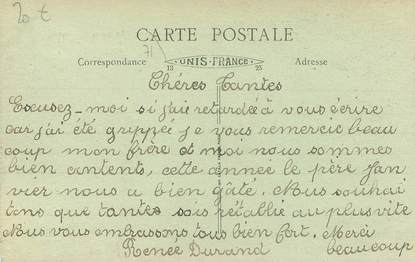 20 t
CARTE POSTALE
71
Correspondance 13 UNIS-FRANCE 25 Adresse
Chéres Tantes
Excusez-moi si j'aie retardée à vous écrire
car j'ai été grippée je vous remercie beau
coup mon frère et moi nous sommes
bien contents, cette année le père Jan
vier nous a bien gâté. Nous souhai
tons que tantes sois rétablie au plus vite
Nous vous embrassons tous bien fort. Merci
Renée Durand beaucoup